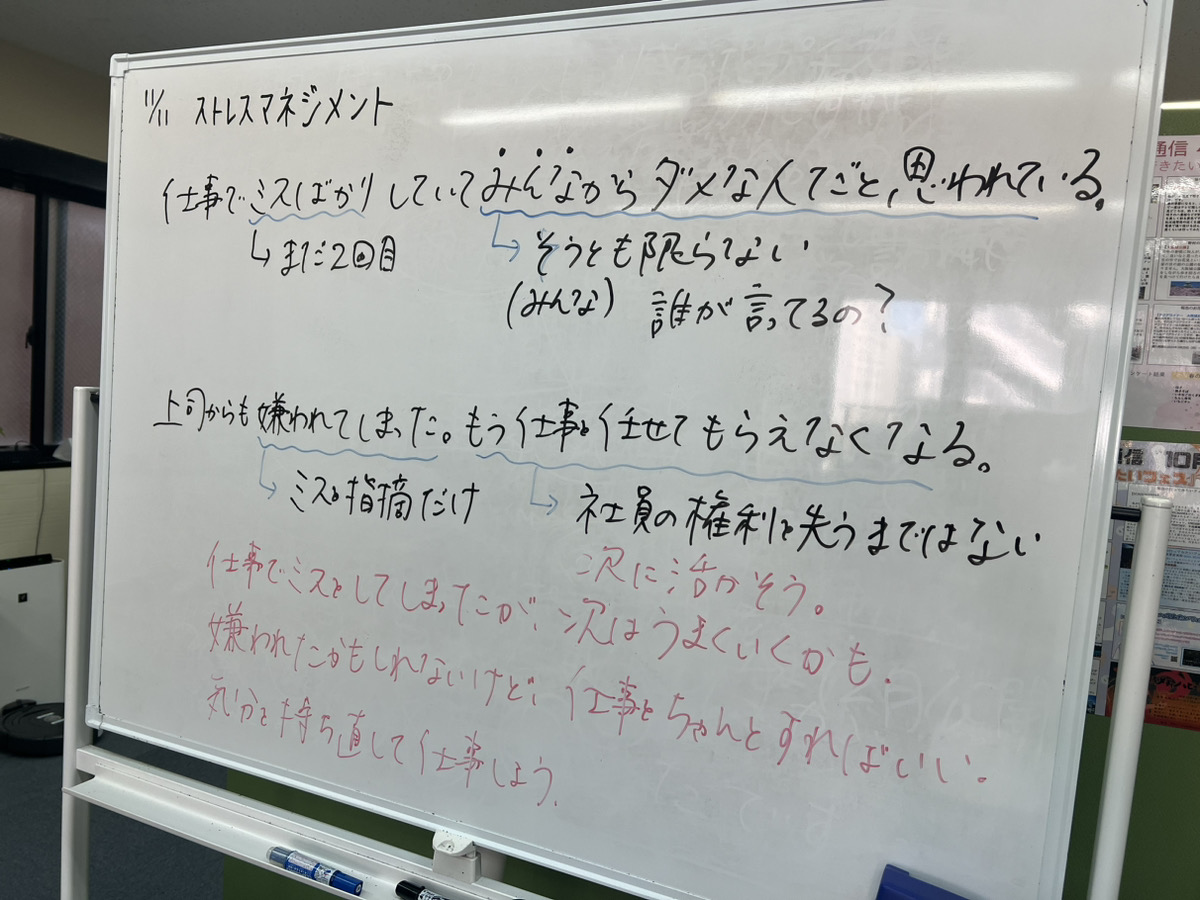 11/11 ストレスマネジメント
仕事でミスばかりしていてみんなからダメな人だと、思われている。
↳ まだ2回目
↳ そうとも限らない
(みんな) 誰が言ってるの?
上司からも嫌われてしまった。もう仕事を任せてもらえなくなる。
↳ ミスを指摘だけ
↳ 社員の権利を失うまではない
仕事でミスをしてしまったが、次に活かそう。
次はうまくいくかも。
嫌われたかもしれないけど、仕事をちゃんとすればいい。
気分を持ち直して仕事しよう。
通信
通信 10月